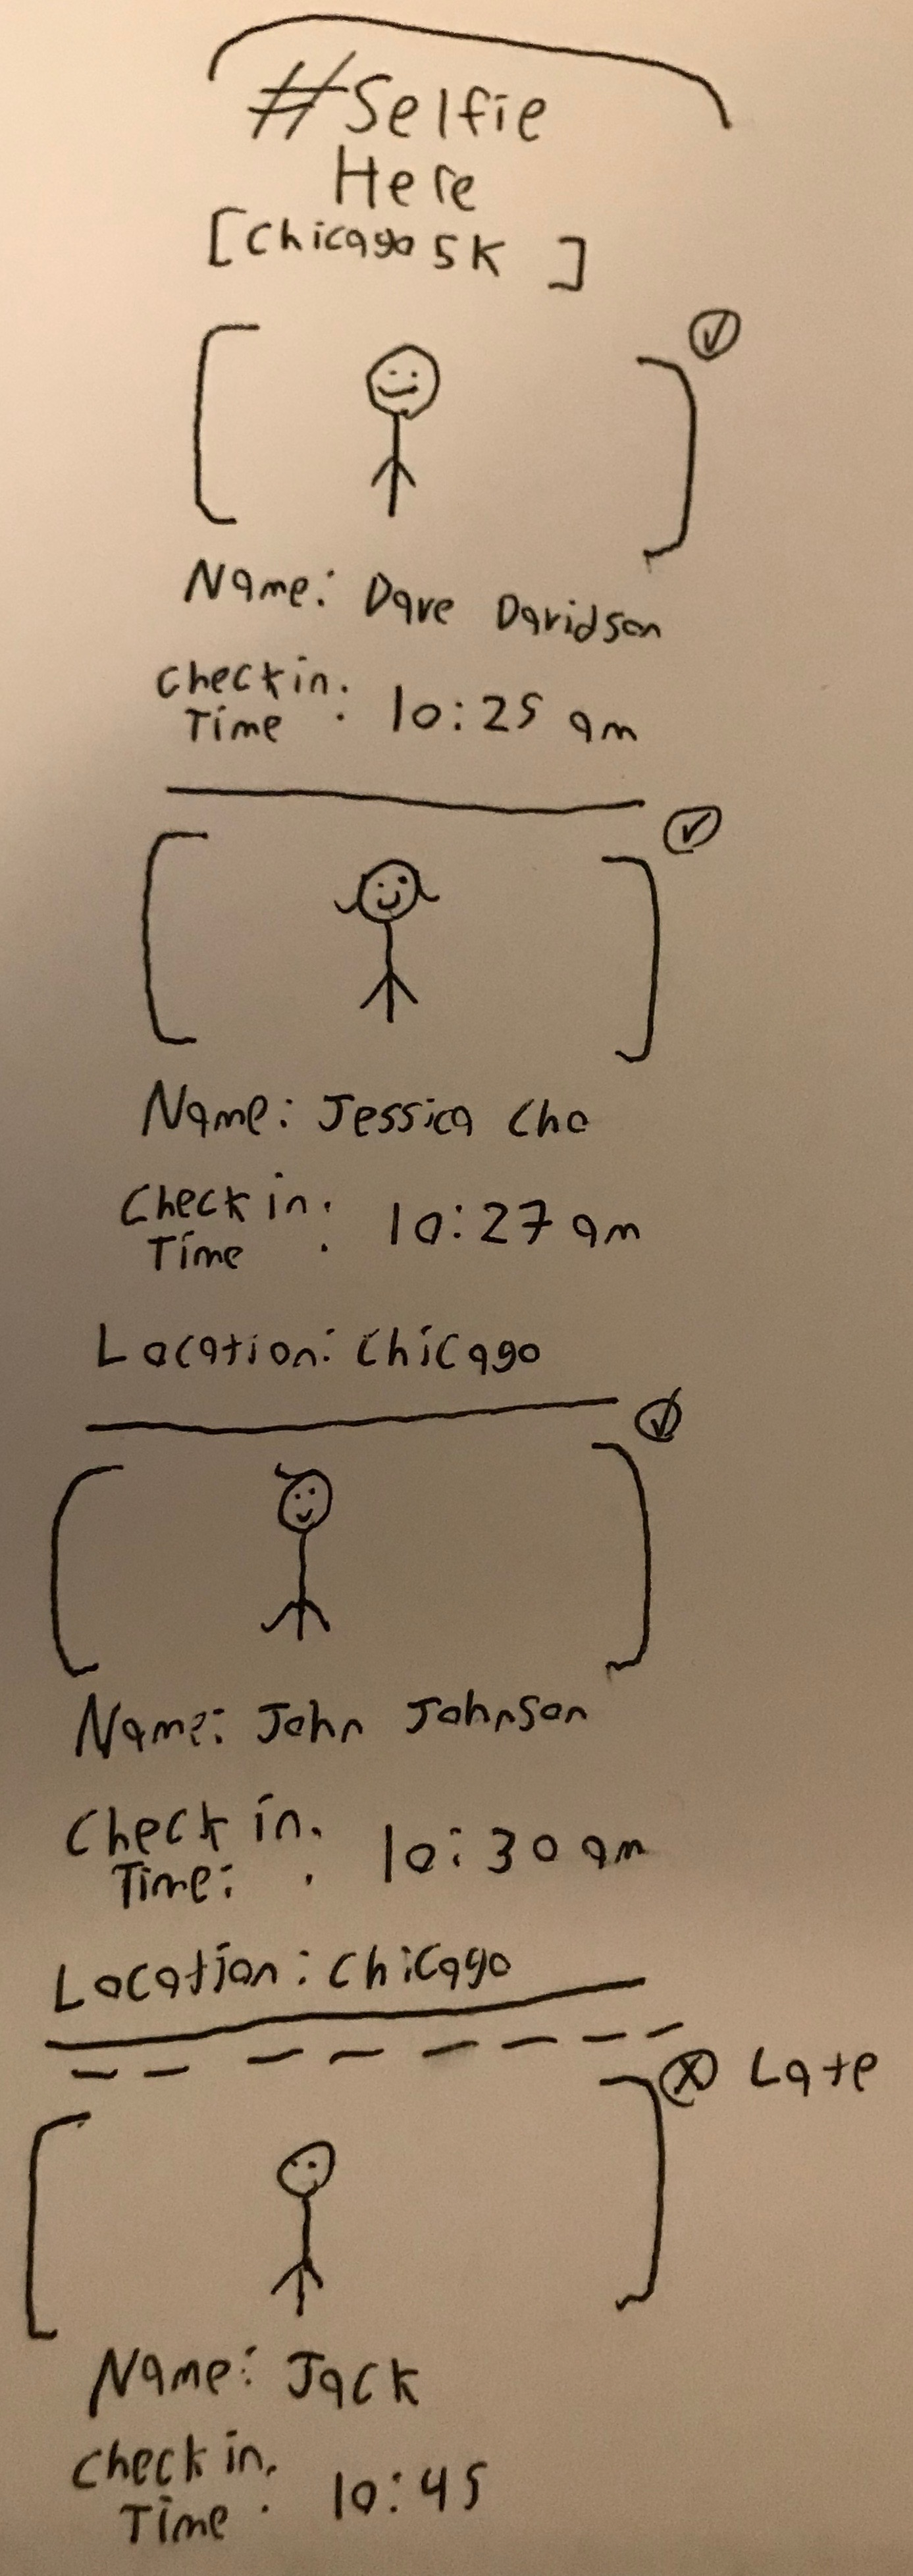 #Selfie
Here
[Chicago 5K ]
Name: Dave Davidson
Check in
Time : 10:25 am
Name: Jessica Cho
Check in
Time : 10:27 am
Location: Chicago
Name: John Johnson
Check in
Time: : 10:30 am
Location: Chicago
Late
Name: Jack
Check in
Time : 10:45